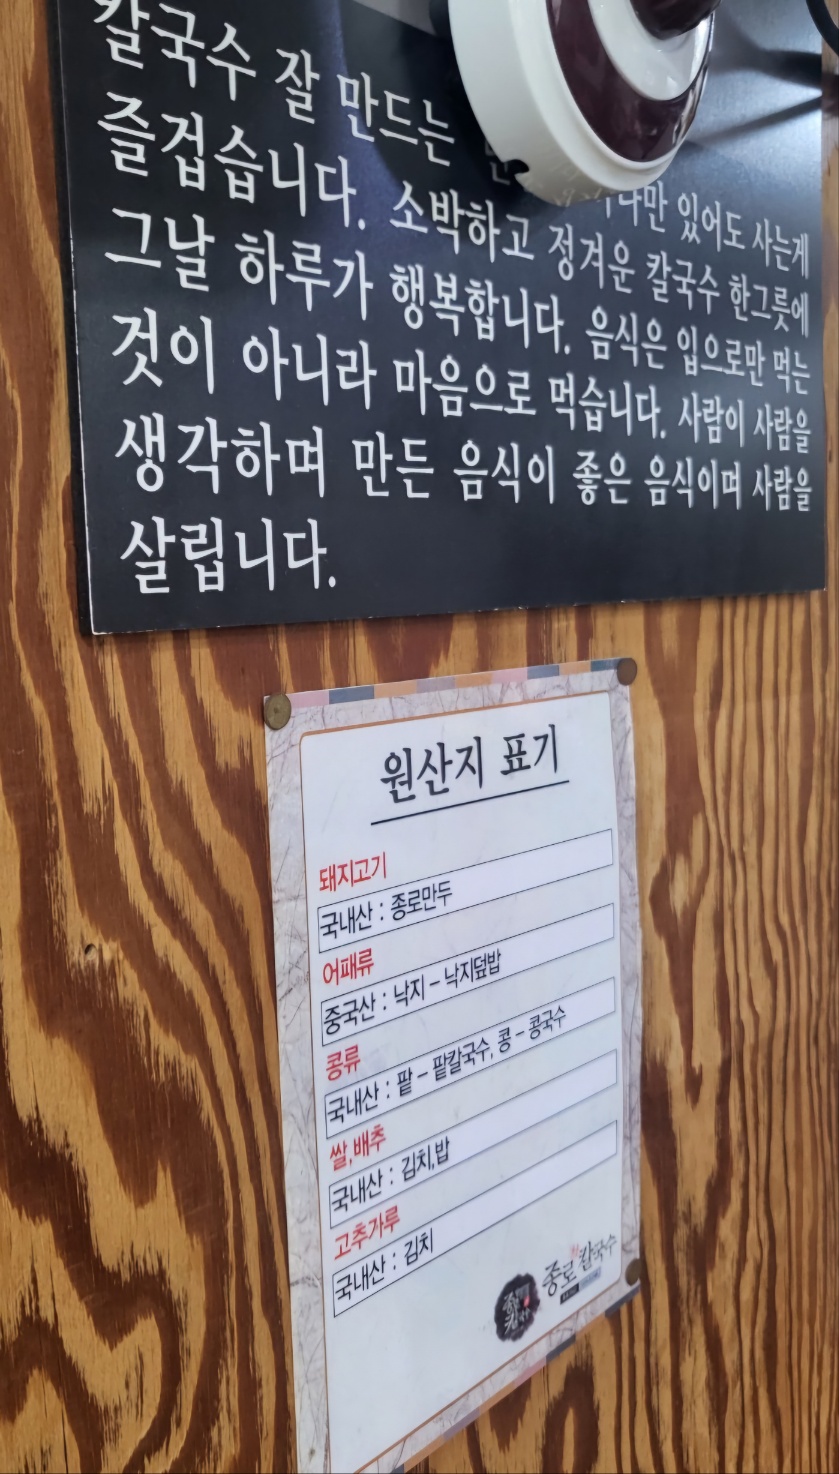 칼국수 잘 만드는 있어도 사는게
즐겁습니다. 소박하고 정겨운 칼국수 한그릇에
그날 하루가 행복합니다. 음식은 입으로만 먹는
것이 아니라 마음으로 먹습니다. 사람이 사람을
생각하며 만든 음식이 좋은 음식이며 사람을
살립니다.
원산지 표기
돼지고기
국내산 : 종로만두
어패류
중국산 : 낙지 - 낙지덮밥
콩류
국내산 : 팥 - 팥칼국수, 콩 - 콩국수
쌀,배추
국내산 : 김치,밥
고추가루
국내산 : 김치
종로 칼국수